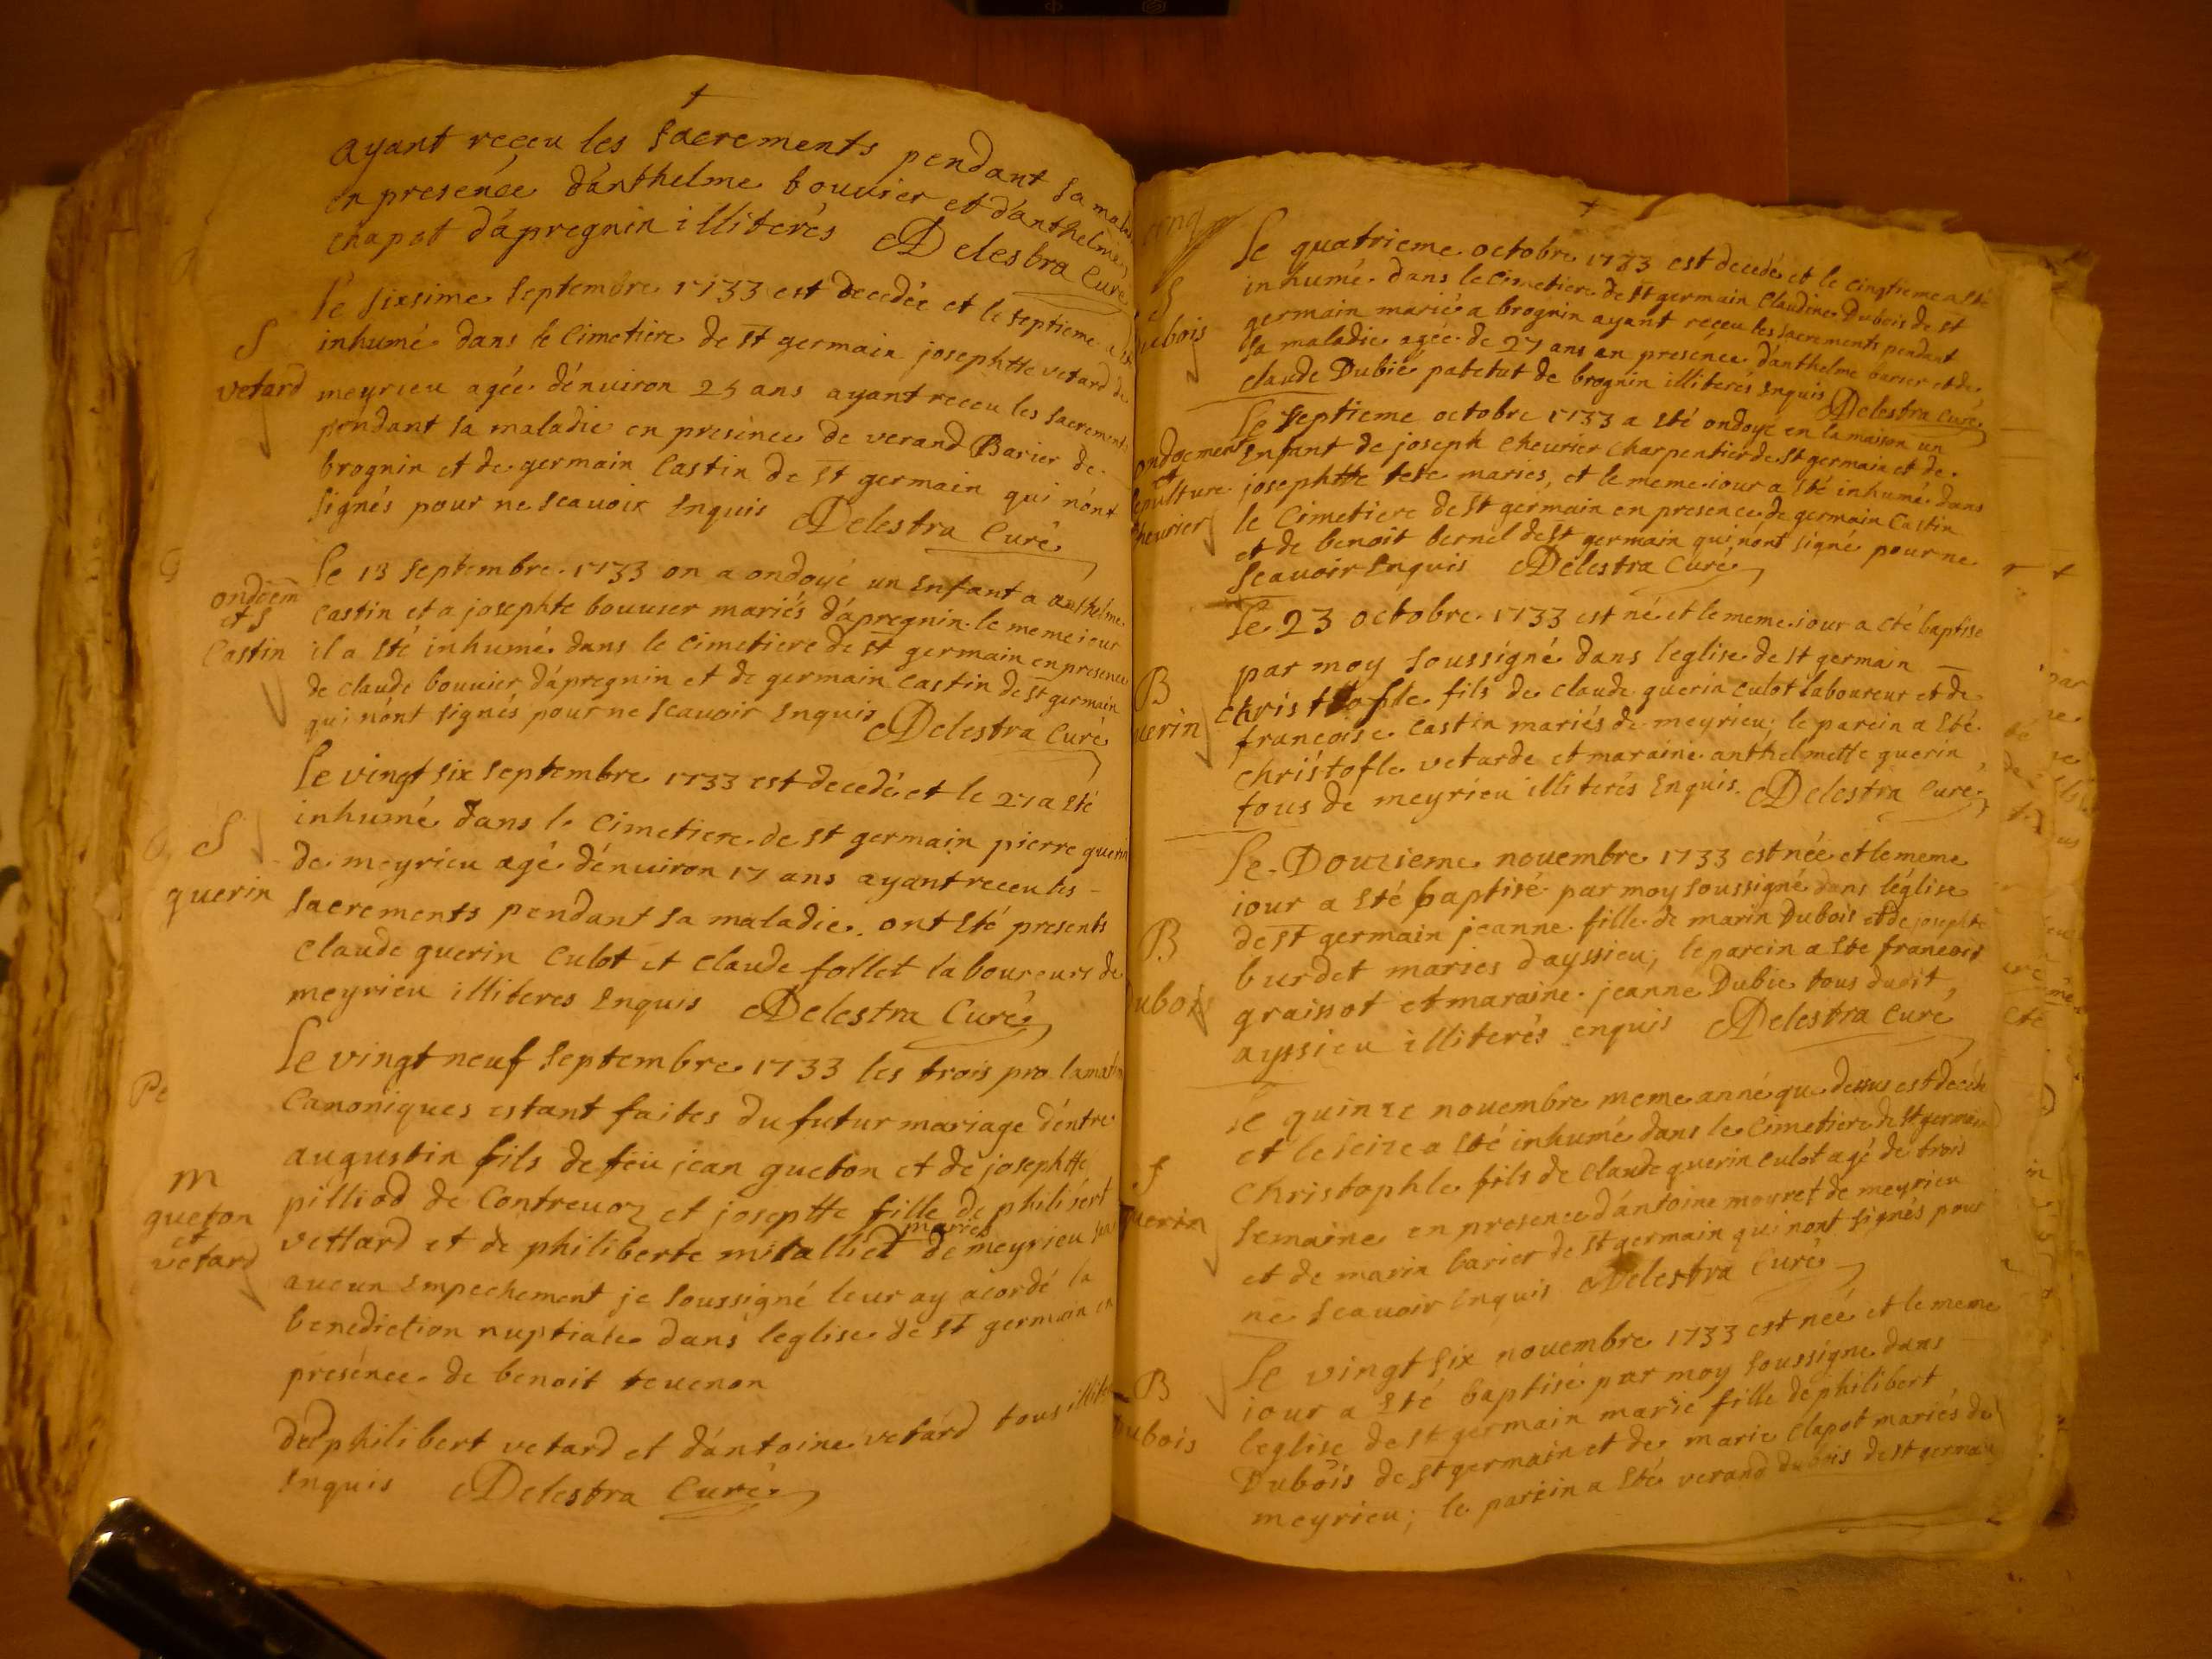 ayant reçeu les sacrements pendant sa
en presence d'anthelme bouvier et d'anthelme
chapot d'apregnin illiterés Delestra Curé
le sixsime septembre 1733 est decedée et le septieme
S
vetard
inhumé dans le cimetiere de st germain josephtte vetard de
meyrieu agée d'enuiron 25 ans ayant receu les sacrements
pendant sa maladie en presence de verand Barier de
brognin et de germain Castin de st germain qui n'ont
signés pour ne scauoir Enquis Delestra Curé
ondoem
et S
Castin
le 13 septembre 1733 on a ondoyé un Enfant a anthelme
Castin et a josephte bouuier mariés d'apregnin le meme iour
il a Eté inhumé dans le Cimetiere de st germain en presence
de claude bouuier d'apregnin et de germain Castin de st germain
qui n'ont signés pour ne scauoir Enquis Delestra Curé
S
guerin
le vingt six septembre 1733 est decedé et le 27 a Eté
inhumé dans le cimetiere de st germain pierre guerin
de meyrieu agé d'enuiron 17 ans ayant receu les
sacrements pendant sa maladie ont Eté presents
Claude guerin Culot et claude follet laboureurs de
meyrieu illiteres Enquis Delestra Curé
m
gueton
et
vetard
le vingt neuf septembre 1733 les trois pro
Canoniques estant faites du futur mariage d'entre
augustin fils de feu jean gueton et de josephtte
pilliod de Contreuoz et joseptte fille de philibert
mariés
vettard et de philiberte de meyrieu
aucun Empechement je soussigné leur ay acordé la
benediction nuptiale dans leglise de st germain en
presence de benoit teuenon
de philibert vetard et d'antoine vetard tous
Enquis Delestra Curé
S
Dubois
le quatrieme octobre 1733 est decedé et le cinqtieme a Eté
inhumé dans le cimetiere de st germain Claudine Dubois de st
germain marié a brognin ayant reçeu les sacrements pendant
sa maladie agée de 27 ans en presence d'anthelme barier et de
claude Dubié patetut de brognin illiterés Enquis Delestra Curé
ondoement
et
sepulture
cheurier
le septieme octobre 1733 a Eté ondoyé en la maison un
Enfant de joseph cheurier charpentier de st germain et de
josephtte tete maries, et le meme iour a Eté inhumé dans
le Cimetiere de st germain en presence de germain Castin
et de benoit bernel de st germain qui n'ont signé pour ne
scauoir Enquis Delestra Curé
B
guerin
le 23 octobre 1733 est né et le meme iour a eté baptisé
par moy soussigné dans leglise de st germain
christofle fils de claude guerin culot laboureur et de
francoise Castin mariés de meyrieu; le parein a Eté
christofle vetarde et maraine anthelmette guerin
tous de meyrieu illiterés Enquis. Delestra Curé
B
Dubois
le Douzieme nouembre 1733 est née et le meme
iour a Eté baptisé par moy soussigné dans léglise
de st germain jeanne fille de marin Dubois et de josephte
burdet maries dayssieu; le parein a Ete francois
graissot et maraine jeanne Dubie tous dudit
ayssieu illiterés enquis Delestra Curé
S
guerin
le quinze nouembre meme anné que dessus est decede
et le seize a Eté inhumé dans le Cimetiere de st germain
Christophle fils de claude guerin culot agé de trois
semaine en presence d'antoine mouret de meyrieu
et de marin barier de st germain qui nont signés pour
ne scauoir Enquis Delestra Curé
B
Dubois
le vingt six nouembre 1733 est née et le meme
iour a Eté baptisé par moy soussigne dans
leglise de st germain marie fille de philibert
Dubois de st germain et de marie Clapot mariés de
meyrieu; le parein a Eté verand dubois de st germain